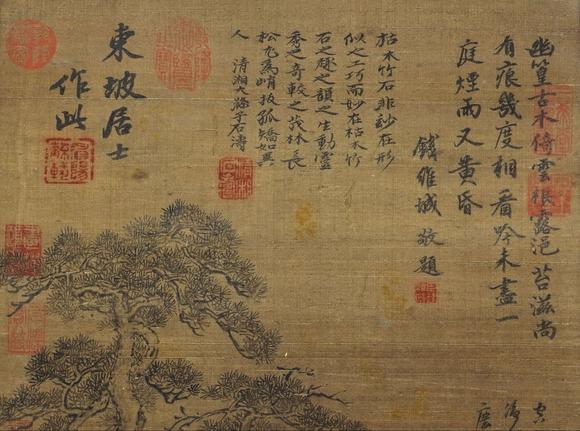 幽篁古木倚雲根露浥苔滋尚
有痕幾度相看吟未盡一
庭煙雨又黃昏
錢維城敬題
枯木竹石非玅在形
似之工巧而妙在枯木竹
石之趣之韻之生動靈
秀之奇較之茂林長
松尤為峭拔孤矯如異
人 清湘大滌子石濤
東坡居士
作此